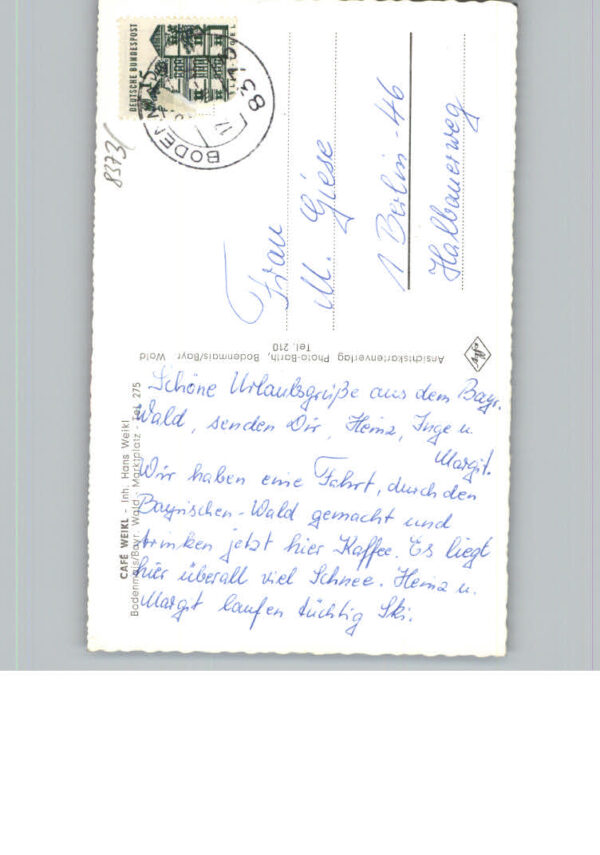 DEUTSCHE BUNDESPOST
BODENMAIS
8373
Frau
M. Giese
1 Berlin-46
Halbauerweg
Ansichtskartenverlag Photo-Barth, Bodenmais/Bayr. Wald
Tel. 210
CAFÉ WEIKL - Inh. Hans Weikl
Bodenmais/Bayr. Wald - Marktplatz - Tel. 275
Schöne Urlaubsgrüße aus dem Bayr.
Wald, senden Dir, Heinz, Inge u.
Margit.
Wir haben eine Fahrt, durch den
Bayrischen-Wald gemacht und
trinken jetzt hier Kaffee. Es liegt
hier überall viel Schnee. Heinz u.
Margit laufen tüchtig Ski.